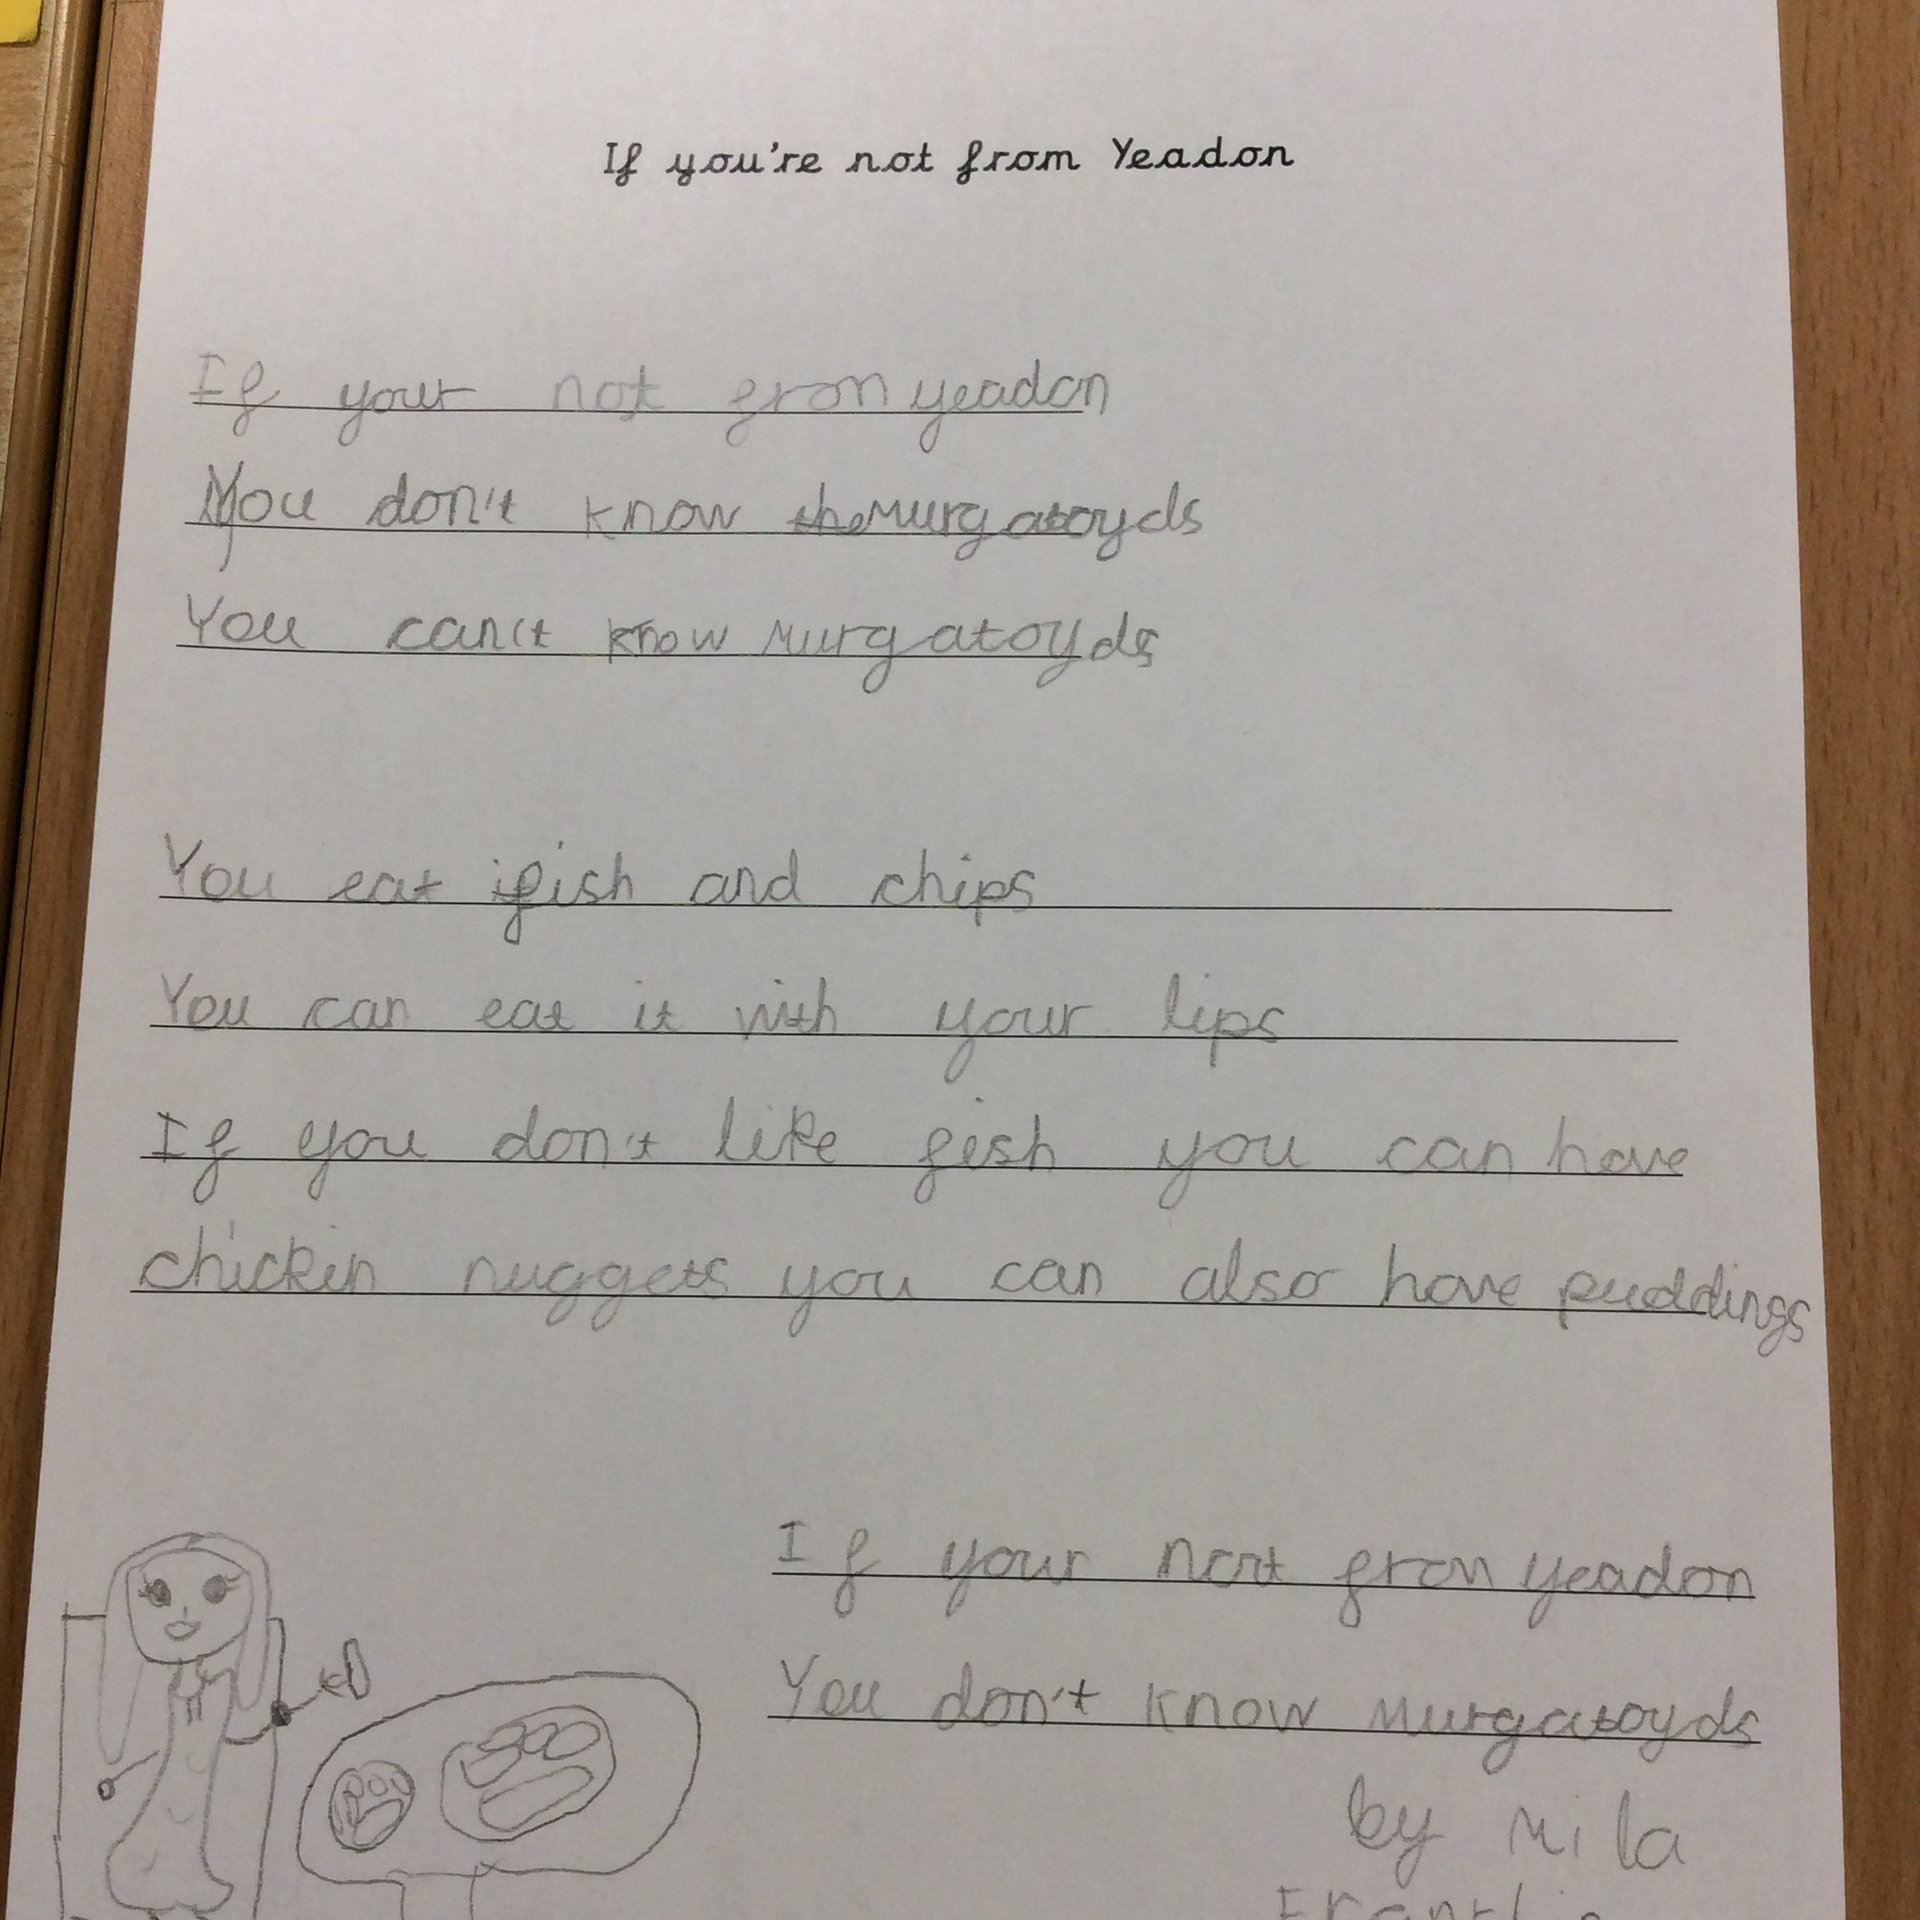 If you're not from Yeadon
If your not fron yeadon
You don't know the Murgatoyds
You can't know Murgatoyds
You eat fish and chips
You can eat it with your lips
If you don't like fish you can have
chickin nuggets you can also have puddings
If your not fron yeadon
You don't know Murgatoyds
by Mila